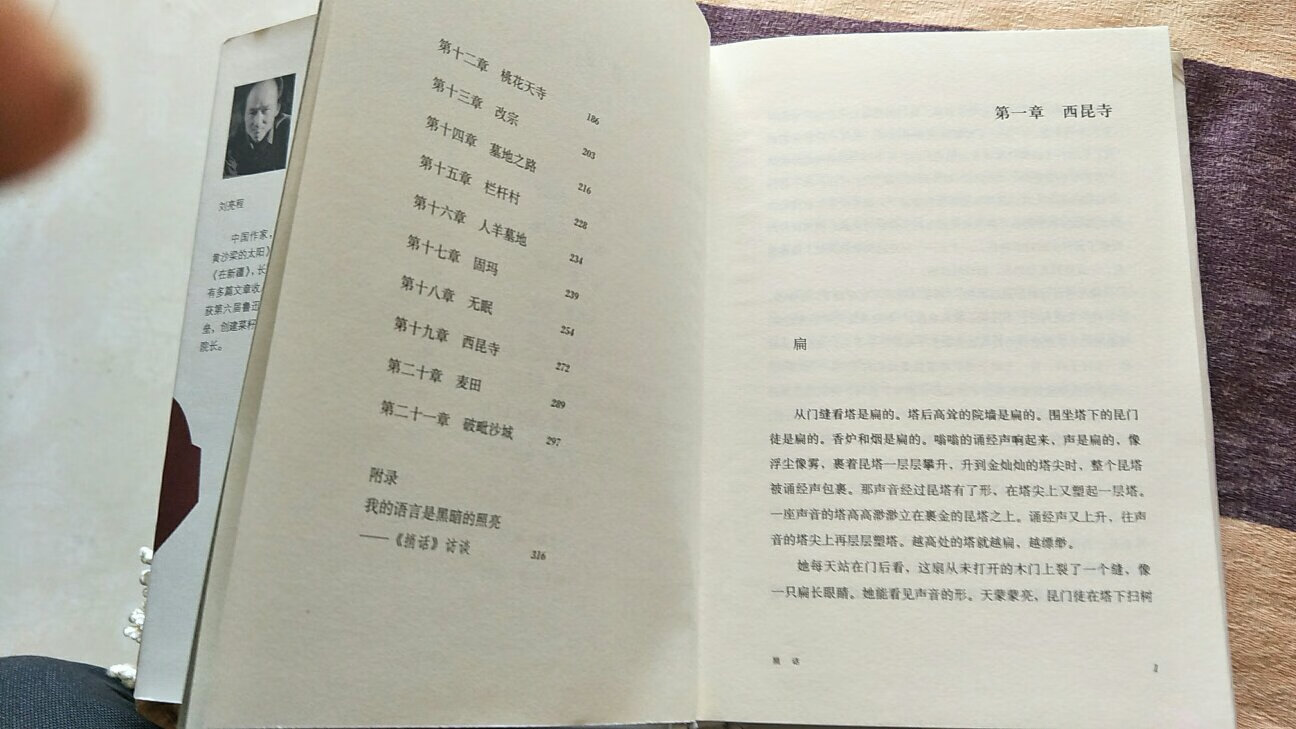 刘亮程
中国作家，
黄沙梁的太阳》
《在新疆》，长
有多篇文章收
获第六届鲁迅
垒，创建菜籽
院长。
第十二章 桃花天寺 186
第十三章 改宗 203
第十四章 墓地之路 216
第十五章 栏杆村 228
第十六章 人羊墓地 234
第十七章 固玛 239
第十八章 无眠 254
第十九章 西昆寺 272
第二十章 麦田 289
第二十一章 破毗沙城 297
附录
我的语言是黑暗的照亮
——《捎话》访谈 316
第一章 西昆寺
扁
从门缝看塔是扁的。塔后高耸的院墙是扁的。围坐塔下的昆门
徒是扁的。香炉和烟是扁的。嗡嗡的诵经声响起来，声是扁的，像
浮尘像雾，裹着昆塔一层层攀升，升到金灿灿的塔尖时，整个昆塔
被诵经声包裹。那声音经过昆塔有了形，在塔尖上又塑起一层塔。
一座声音的塔高高渺渺立在裹金的昆塔之上。诵经声又上升，往声
音的塔尖上再层层塑塔。越高处的塔就越扁、越缥缈。
她每天站在门后看，这扇从未打开的木门上裂了一个缝，像
一只扁长眼睛。她能看见声音的形。天蒙蒙亮，昆门徒在塔下扫树
捎 话